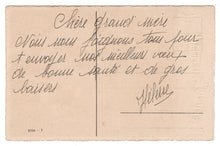 Chère grand mère
Nous nous joignons tous pour
t envoyer nos meilleurs vœux
de bonne santé et de gros
baisers
Hélène